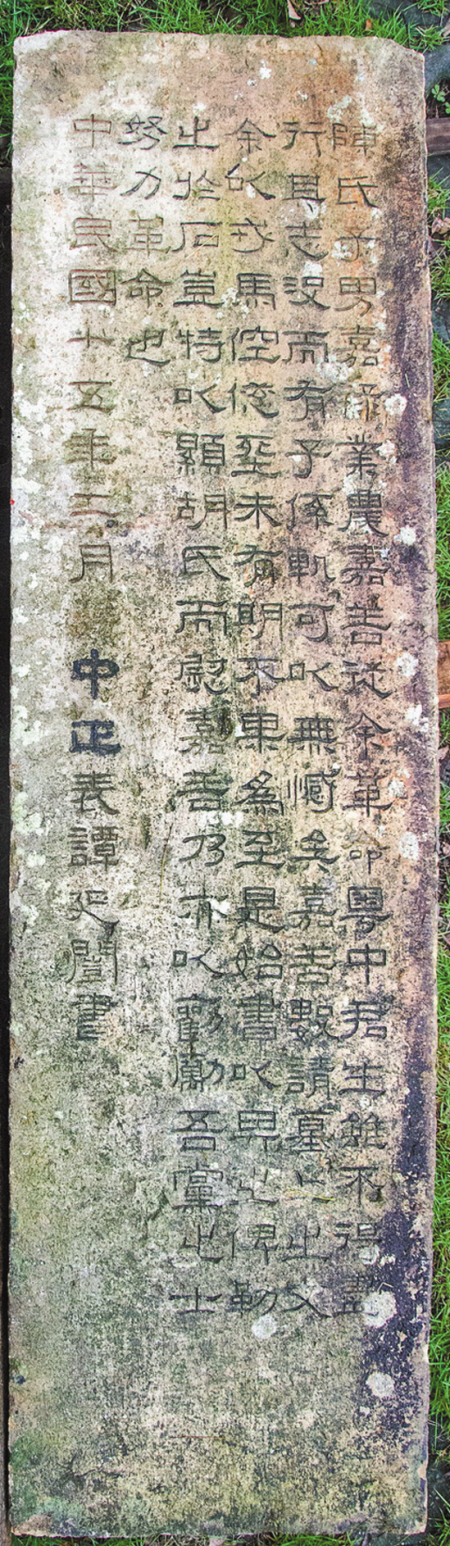 陳氏子男嘉 業農嘉善從余革命粵中君生雖不得盡
行其志沒而有子係軌可以無憾矣嘉善數請墓上之文
余以戎馬倥傯至未有暇不果為至是始書以畀之俾勒
之於石豈特以顯胡氏而慰嘉善乃亦以勸勵吾黨之士
努力革命也
中華民國十五年十二月 中正表譚延闓書